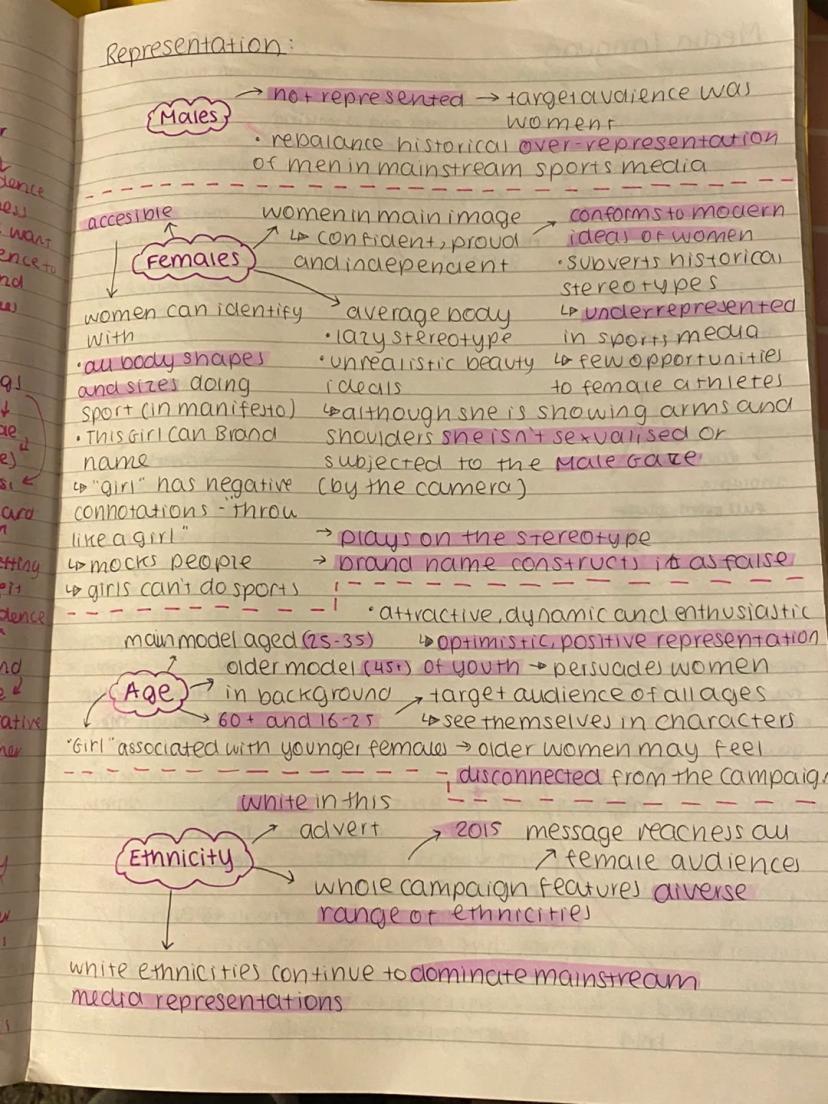 Representation:
→ not represented → target audience was
Males
women
• rebalance historical over-representation
of men in mainstream sports media
accesible
women in main image
↳ confident, proud
and independent
→ conforms to modern
ideas of women
• subverts historical
stereotypes
↳ underrepresented
in sports media
↳ few opportunities
to female athletes
Females
women can identify
with
• all body shapes
and sizes doing
sport (in manifesto)
• This Girl Can Brand
name
↳ "girl" has negative
connotations - "throw
like a girl"
↳ mocks people
↳ girls can't do sports
average body
• lazy stereotype
• unrealistic beauty
ideals
↳ although she is showing arms and
shoulders she isn't sexualised or
subjected to the Male Gaze
(by the camera)
→ plays on the stereotype
→ brand name constructs it as false
main model aged (25-35)
Age
older model (45+)
in background
60+ and 16-25
• attractive, dynamic and enthusiastic
↳ optimistic, positive representation
of youth → persuades women
→ target audience of all ages
↳ see themselves in characters
"Girl" associated with younger females → older women may feel
disconnected from the campaig
white in this
advert
Ethnicity
whole campaign features diverse
range of ethnicities
2015 message reachess all
female audiences
white ethnicities continue to dominate mainstream
media representations